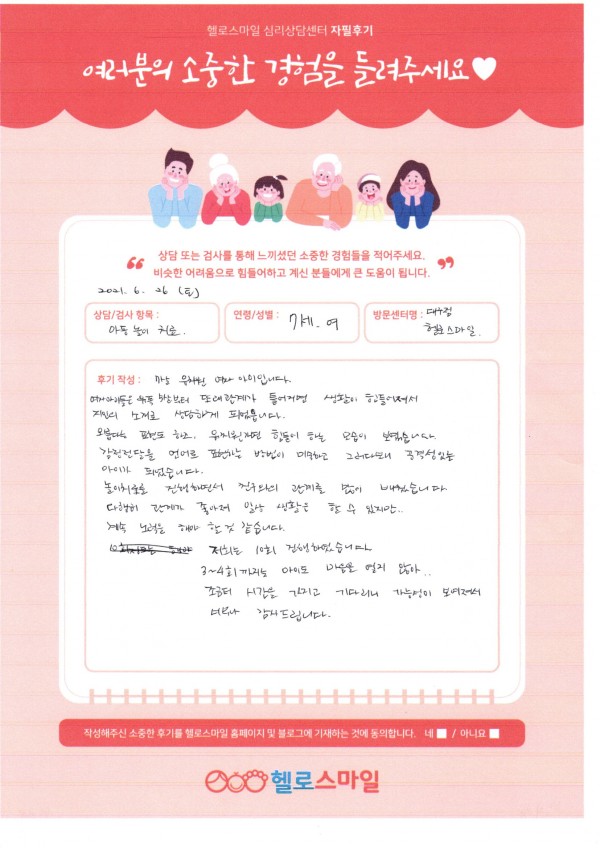 헬로스마일 심리상담센터 자필후기
여러분의 소중한 경험을 들려주세요
상담 또는 검사를 통해 느끼셨던 소중한 경험들을 적어주세요.
비슷한 어려움으로 힘들어하고 계신 분들에게 큰 도움이 됩니다.
2021. 6. 26 (토)
상담/검사 항목 :
아동 놀이 치료.
연령/성별 : 7세. 여
방문센터명 : 대구점
헬로스마일.
후기 작성 : 유치원 여자 아이입니다.
여자아이들은 또래관계가 틀어지면 생활이 힘들어져서
상담하게 되었습니다.
표현도 하고.. 힘들어 하는 모습이 보였습니다.
감정전달을 언어로 표현하는 방법이 미숙하고 그러다보니
아이가 되었습니다.
놀이치료를 진행하면서 친구와의 관계를 많이 배웠습니다
다행히 관계가 좋아져 일상 생활은 할 수 있지만..
계속 노력을 해야 할 것 같습니다.
저희는 10회 진행하였습니다.
3~4회 까지는 아이도 마음을 열지 않아..
조금더 시간을 가지고 기다리니 가능성이 보여져서
너무나 감사드립니다.
작성해주신 소중한 후기를 헬로스마일 홈페이지 및 블로그에 기재하는 것에 동의합니다. 네 / 아니요
헬로스마일